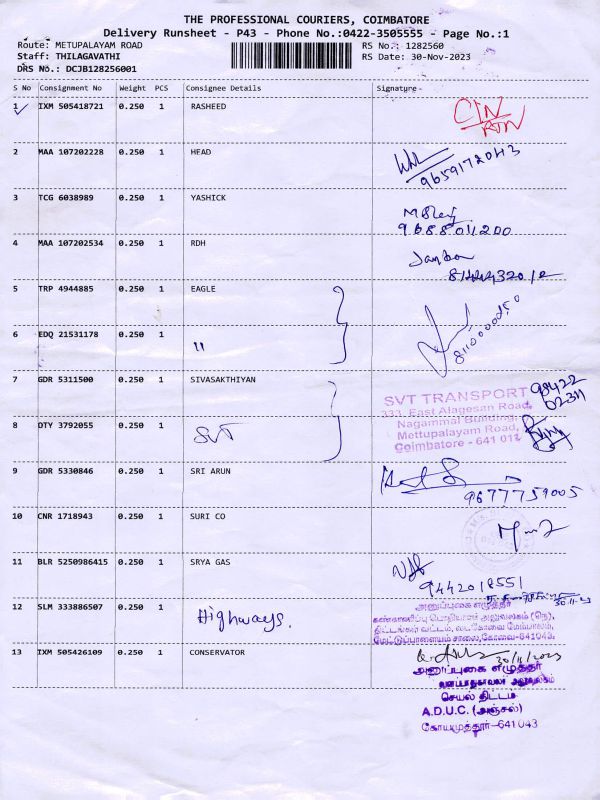 THE PROFESSIONAL COURIERS, COIMBATORE
Delivery Runsheet - P43 - Phone No.:0422-3505555 - Page No.:1
Route: METUPALAYAM ROAD
RS No.: 1282560
Staff: THILAGAVATHI
RS Date: 30-Nov-2023
DRS No.: DCJB128256001
S No Consignment No Weight PCS Consignee Details Signature
1 IXM 505418721 0.250 1 RASHEED
2 MAA 107202228 0.250 1 HEAD
9659172043
3 TCG 6038989 0.250 1 YASHICK
9688011200
4 MAA 107202534 0.250 1 RDH
5 TRP 4944885 0.250 1 EAGLE
6 EDQ 21531178 0.250 1 "
7 GDR 5311500 0.250 1 SIVASAKTHIYAN
98422
02311
SVT TRANSPORT
333, East Alagesan Road,
Nagammal Building,
Mettupalayam Road,
Coimbatore - 641 012
8 DTY 3792055 0.250 1 SVT
9 GDR 5330846 0.250 1 SRI ARUN
9677759005
10 CNR 1718943 0.250 1 SURI CO
11 BLR 5250986415 0.250 1 SRYA GAS
9442018551
12 SLM 333886507 0.250 1 Highways.
அனுப்புகை எழுத்தர்
கண்காணிப்பு பொறியாளர் அலுவலகம் (நெ),
மேட்டுப்பாளையம் சாலை,கோவை-641043.
13 IXM 505426109 0.250 1 CONSERVATOR
30/11/2023
அனுப்புகை எழுத்தர்
செயல் திட்டம்
A.D.U.C. (அஞ்சல்)
கோயமுத்தூர்-641043